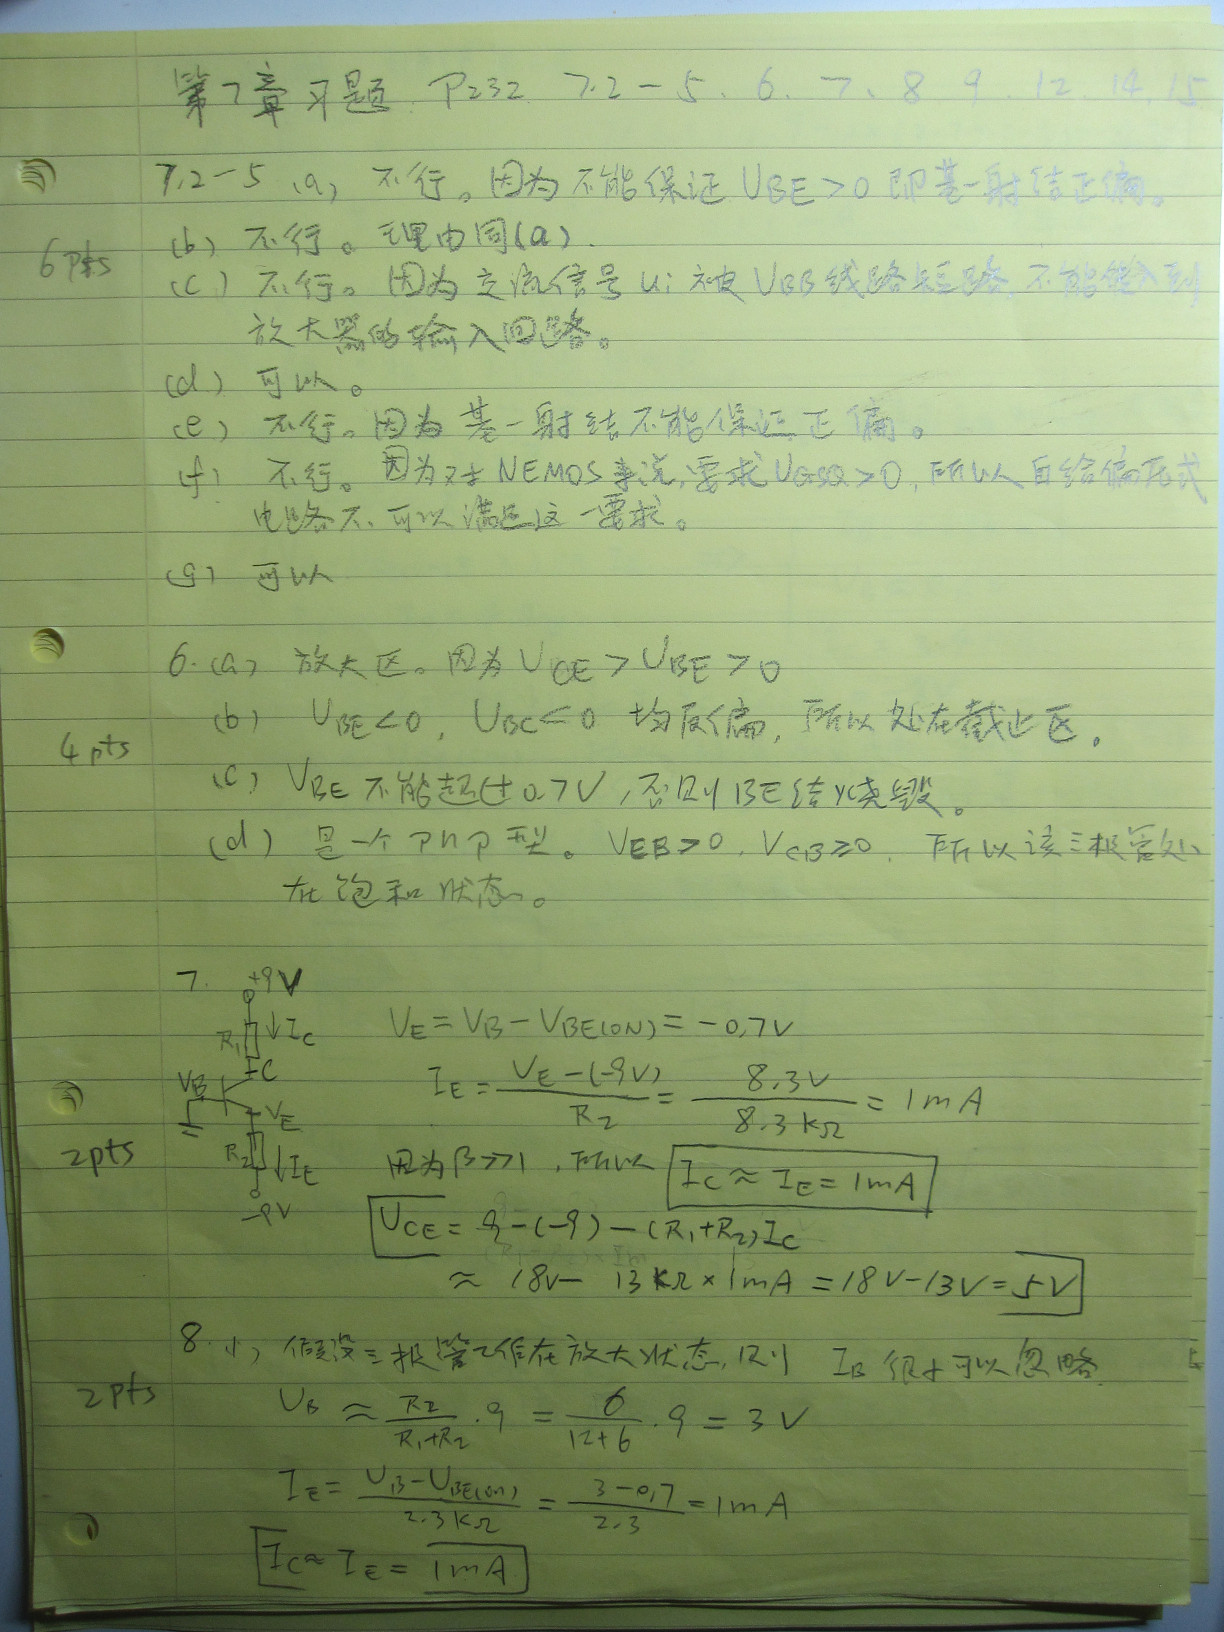 第7章习题 P232 7.2-5、6、7、8 9. 12. 14. 15
7.2-5 (a) 不行。因为不能保证 UBE>0 即基-射结正偏。
6 pts
(b) 不行。理由同(a).
(c) 不行。因为交流信号 ui 被 VBB 线路短路,不能输入到
放大器的输入回路。
(d) 可以。
(e) 不行。因为基-射结不能保证正偏。
(f) 不行。因为对于NEMOS来说,要求UGSQ>0,所以自给偏压式
电路不可以满足这一要求。
(g) 可以
6. (a) 放大区。因为 UCE > UBE > 0
4 pts
(b) UBE<0, UBC<0 均反偏,所以处在截止区。
(c) VBE 不能超过0.7V,否则BE结烧毁。
(d) 是一个PnP型。VEB>0, VCB≥0, 所以该三极管处
在饱和状态。
7. +9V
R1 ↓IC
VE = VB - VBE(ON) = -0.7V
C
VB
VE
IE = VE-(-9V) / R2 = 8.3V / 8.3KΩ = 1mA
2pts
R2 ↓IE
-9V
因为β>>1,所以 IC ≈ IE = 1mA
UCE = 9-(-9)-(R1+R2)IC
≈ 18V - 13KΩ × 1mA = 18V-13V = 5V
8. (1) 假设三极管工作在放大状态,则 IB 很小可以忽略
2pts
UB ≈ R2 / R1+R2 · 9 = 6 / 12+6 · 9 = 3V
IE = UB-UBE(on) / 2.3KΩ = 3-0.7 / 2.3 = 1mA
IC ≈ IE = 1mA